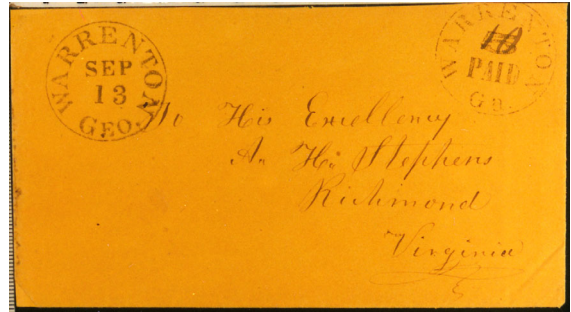 WARRENTON
SEP
13
GEO.
WARRENTON
10
PAID
Ga.
To His Excellency
An. H. Stephens
Richmond
Virginia